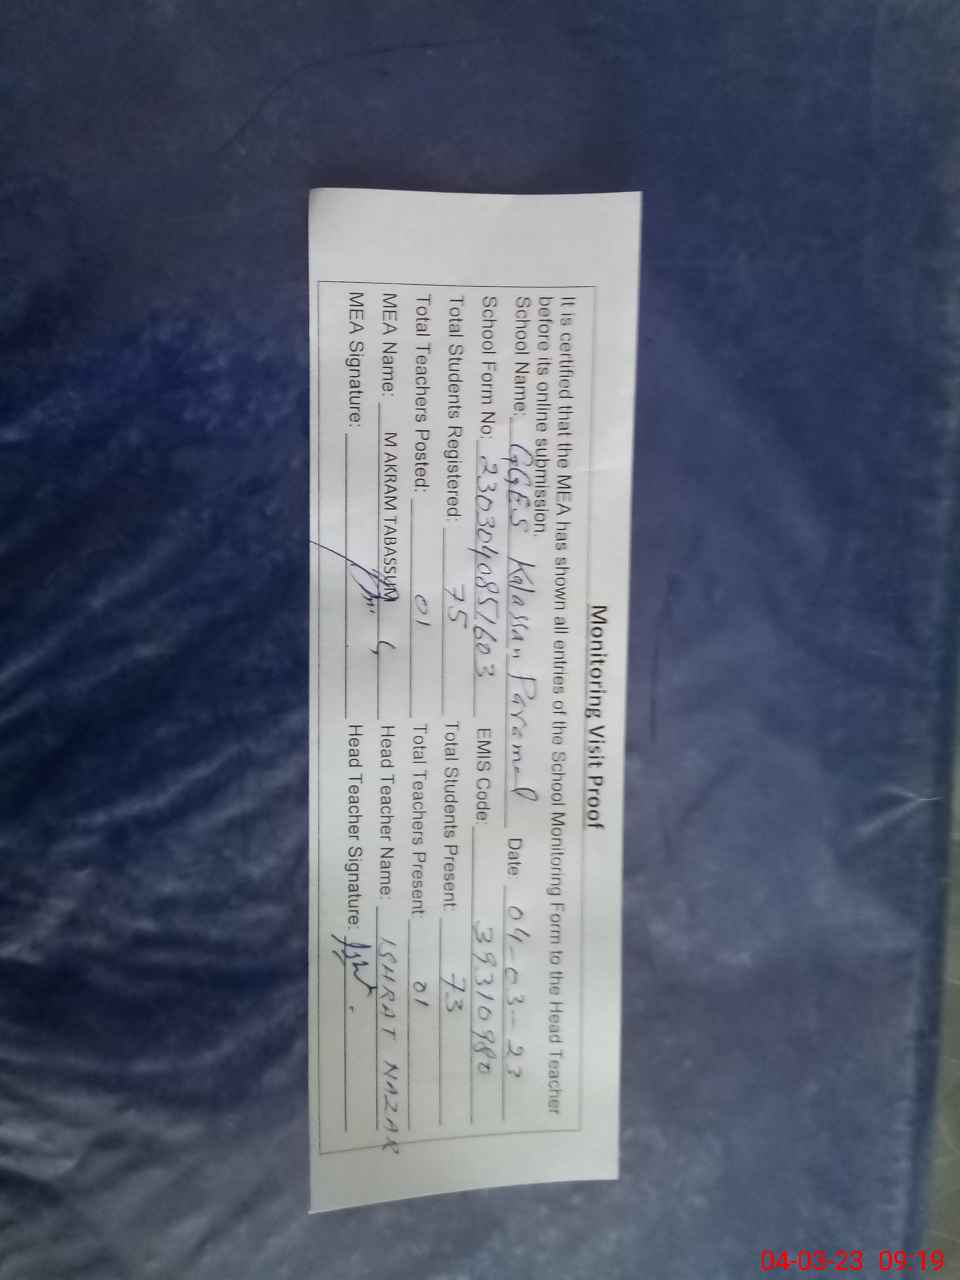 Monitoring Visit Proof
It is certified that the MEA has shown all entries of the School Monitoring Form to the Head Teacher
before its online submission.
School Name: GGES Kalassan Paramal Date: 04-03-23
School Form No: 2303040851603 EMIS Code: 39310980
Total Students Registered: 75 Total Students Present: 73
Total Teachers Posted: 01 Total Teachers Present: 01
MEA Name: M AKRAM TABASSUM Head Teacher Name: ISHRAT NAZAR
MEA Signature: Head Teacher Signature:
04-03-23 09:19